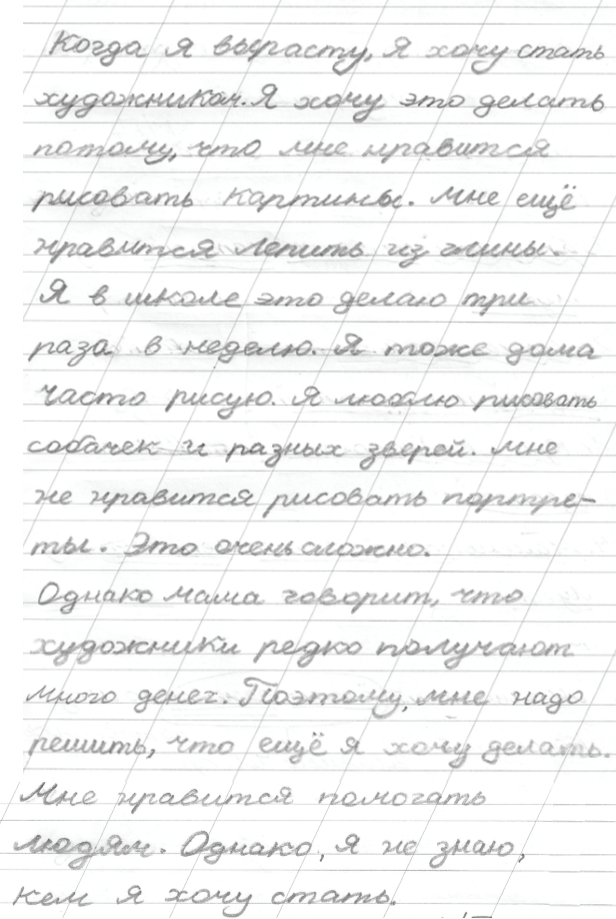 Когда я вырасту, я хочу стать
художником. Я хочу это делать
потому, что мне нравится
рисовать картины. Мне ещё
нравится лепить из глины.
Я в школе это делаю три
раза в неделю. Я тоже дома
часто рисую. Я люблю рисовать
собачек и разных зверей. Мне
не нравится рисовать портре-
ты. Это очень сложно.
Однако мама говорит, что
художники редко получают
много денег. Поэтому, мне надо
решить, что ещё я хочу делать.
Мне нравится помогать
людям. Однако, я не знаю,
кем я хочу стать.